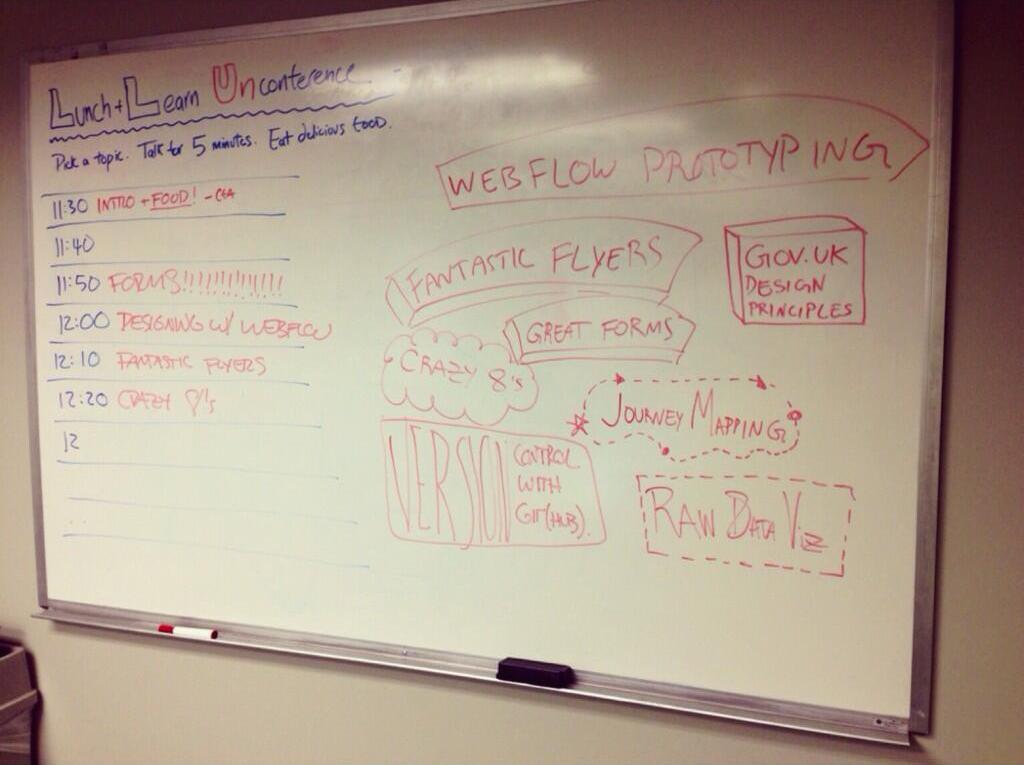 Lunch + Learn Unconference
Pick a topic. Talk for 5 minutes. Eat delicious food.
11:30 INTRO + FOOD! -
11:40
11:50 FORMS!!!!!!!!!!!!!
12:00 DESIGNING W/ WEBFLOW
12:10 FANTASTIC FLYERS
12:20 CRAZY 8's
12
WEBFLOW PROTOTYPING
FANTASTIC FLYERS
GOV.UK
DESIGN
PRINCIPLES
GREAT FORMS
CRAZY 8's
JOURNEY MAPPING
VERSION CONTROL
WITH
GIT(HUB).
RAW DATA VIZ